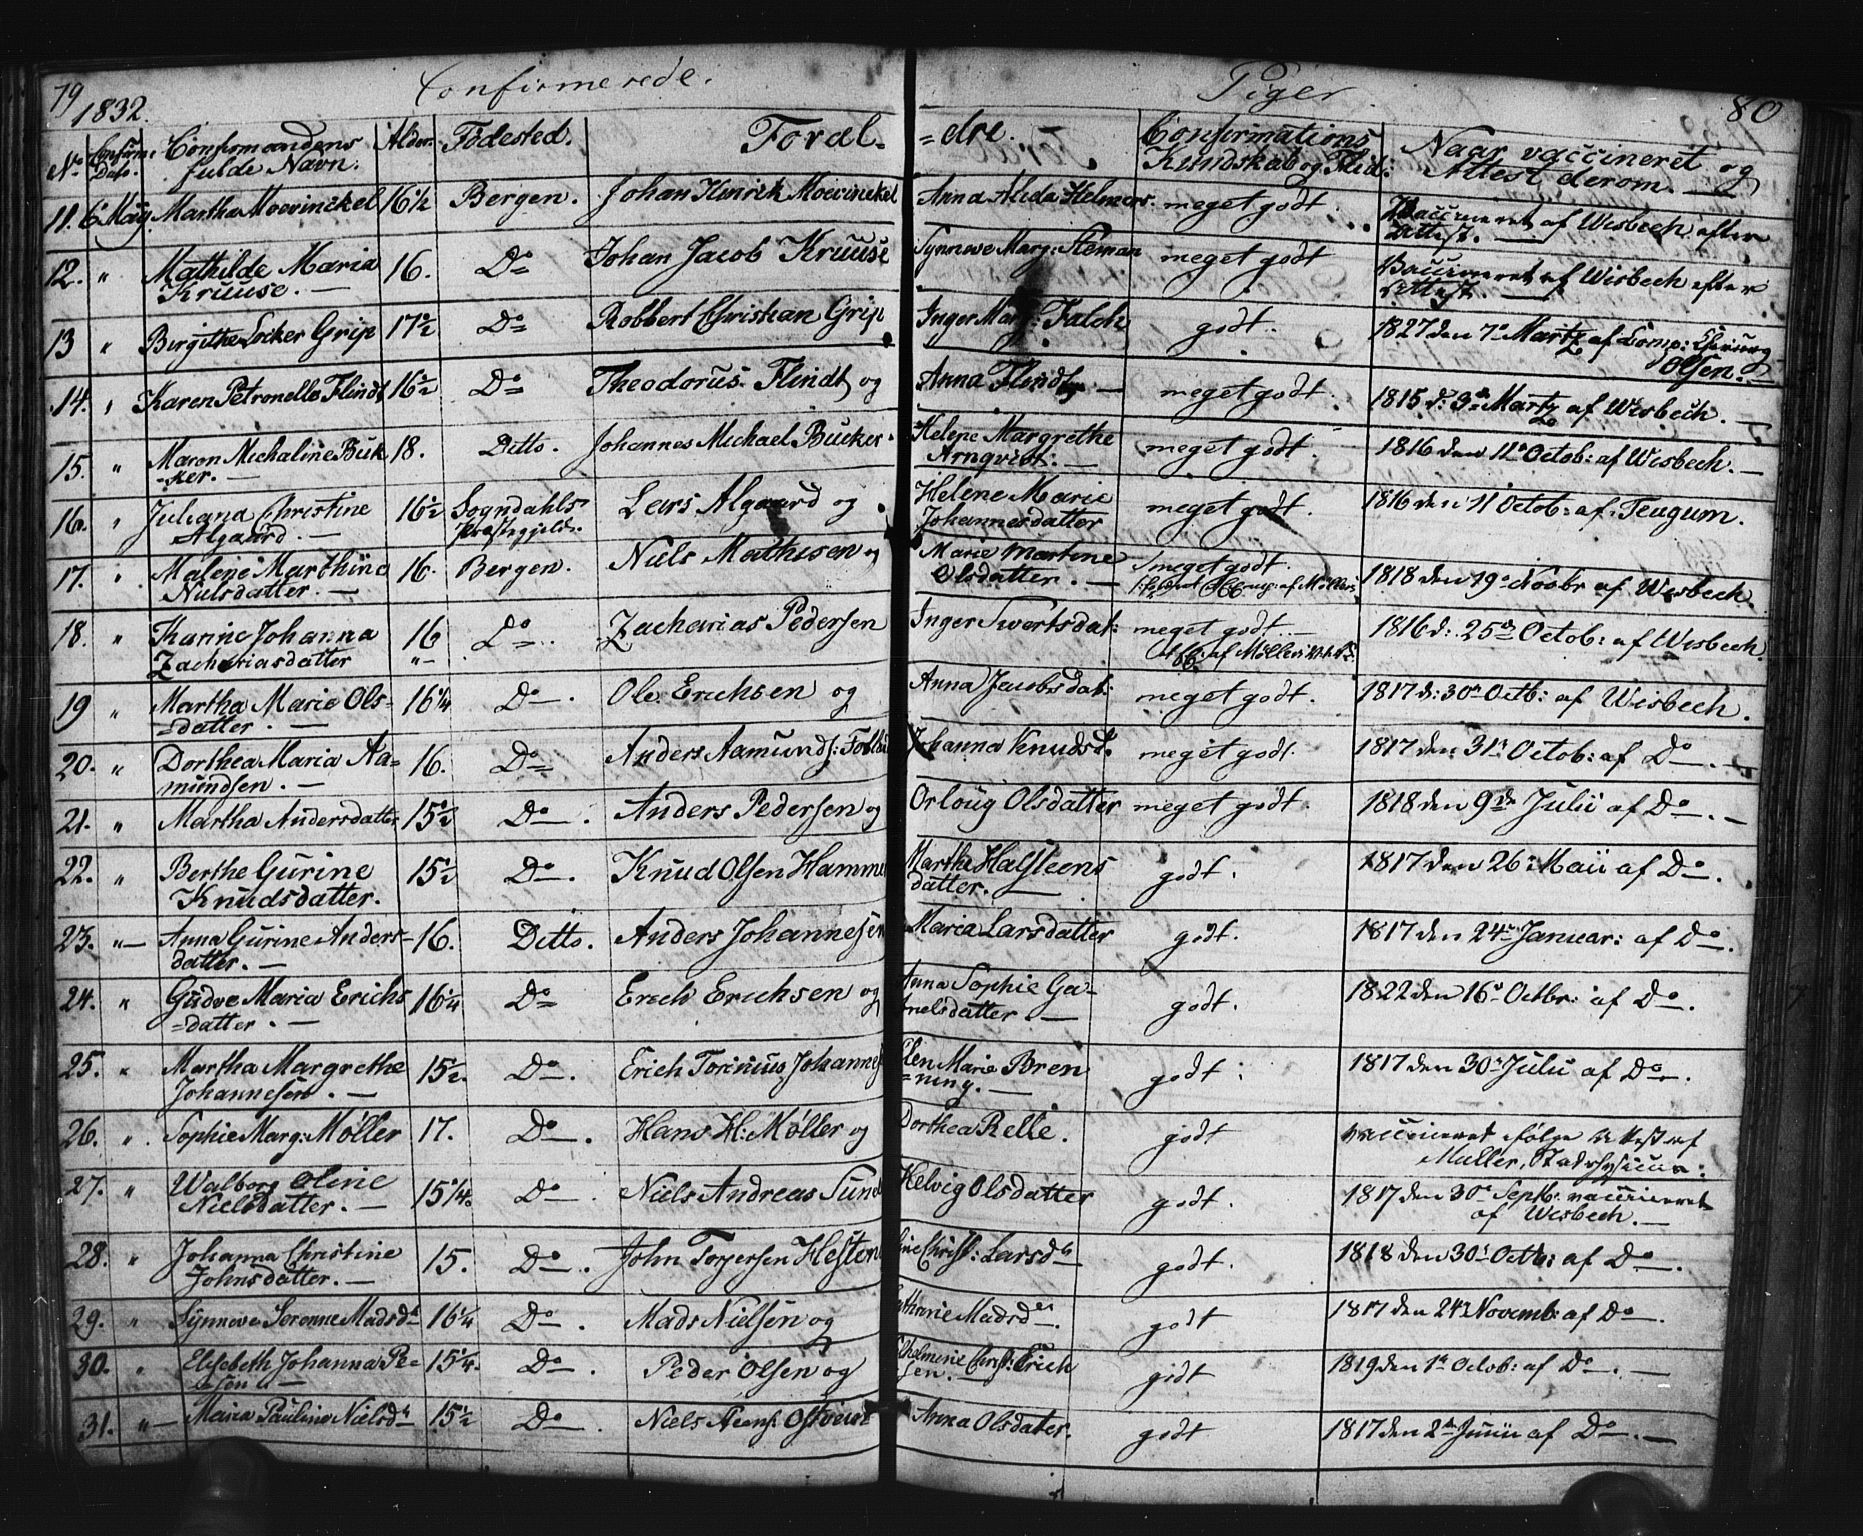 79 Confirmerede. Piger. 80
1832.
No Confirm: Dato. Confirmandens fulde Navn. Alder. Fødested. Foræl- =dre. Confirmations Kundskab og Flid. Naar vaccineret og Attest derom. —
11. 6 May Martha Mowinckel 16½ Bergen. Johan Hinrich Mowinckel Anna Alida Helmers. meget godt. Vaccineret af Wisbech efter Attest. —
12. " Mathilde Maria Kruuse. — 16. Do Johan Jacob Kruuse Synneve Marg: Steman meget godt Vaccineret af Wisbech efter Attest. —
13 " Birgithe Locker Grip 17½ Do Robbert Christian Grip Inger Marg: Falch godt. 1827 den 7de Martz af Comp: Chirurg Olsen. —
14. " Karen Petronelle Flindt 16½ Do Theodorus Flindt og Anna Flindt — meget godt. 1815 d: 3de Martz af Wisbech. —
15. " Maren Michaline Bük -ker. — 18. Ditto. Johannes Michael Bücker. Helene Margrethe Arnqvist. — meget godt. 1816 den 11te Octob: af Wisbech. —
16. " Juliana Christine Algaard. — 16½ Sogndahls Præstegjeld. Lars Algaard og Helene Marie Johannesdatter meget godt. 1816 den 11 Octob: af Teugum.
17. " Malene Marthine Nielsdatter. — 16. Bergen. Niels Mathisen og Marie Martine Olsdatter. — meget godt. 1818 den 19de Novbr af Wisbech.
18. " Karine Johanna Zachariasdatter 16 "- Do. Zacharias Pedersen Inger Sivertsdat: meget godt. — 1816 d: 25de Octob: af Wisbech.
19 " Martha Marie Ols- =datter. — 16¼ Do. Ole Erichsen og Anna Jacobsdat: meget godt. 1817 d: 30te Octb: af Wisbech.
20. " Dorthea Maria Aa= mundsen. — 16. Do Anders Aamunds: Johanna Knudsd. meget godt. 1817 den 31te Octob: af Do. —
21. " Martha Andersdatter 15½ Do. Anders Pedersen og Orloug Olsdatter meget godt. 1818 den 9de Julii af Do. —
22. " Berthe Gurine Knudsdatter. 15½ Do. Knud Olsen Hamme Marthe Halsteens datter. — godt. 1817 den 26de Maii af Do.
23. " — Anna Gurine Anders- datter. — 16. Ditto. Anders Johannesen Maria Larsdatter godt. 1817 den 24de Januar: af Do.
24. " Gudve Maria Erichs =datter. — 16¼ Do Erich Erichsen og Anna Sophie Ga- =nelsdatter. — godt. 1822 den 16de Octbr: af Do.
25. " Martha Margrethe Johannesen. — 15½. Do. Erich Torinius Johannes Elen Marie Bren =ning. — godt: 1817 den 30te Julii af Do.
26. " Sophie Marg: Møller 17. Do. Hans H: Møller og Dorthea Relle. godt vaccineret ifølge Attest af Müller, Stadsfysicus.
27. " Walborg Oline Nielsdatter. — 15¼. Do. Niels Andreas Sund Helvig Olsdatter godt. 1817 den 30te Septb: vaccineret af Wisbech. —
28. " Johanna Christine Johnsdatter. — 15. Do. John Torgersen Hesten Christ: Larsdr godt. 1818 den 30te Octb: af Do.
29. " Synneve Serenne Madsdr 16¼ Do. Mads Nielsen og Madsdr. godt 1817 den 24de Novemb: af Do.
30. " Elisebeth Johanna Pe= =sen — 15¼. Do. Peder Olsen og Christ: Erich sen. — gidt 1819 den 1te Octob: af Do. —
31. " — Maria Pauline Nielsdr 15½ Do. Niels Anna Olsdater. godt 1817 den 2den Junii af Do. —